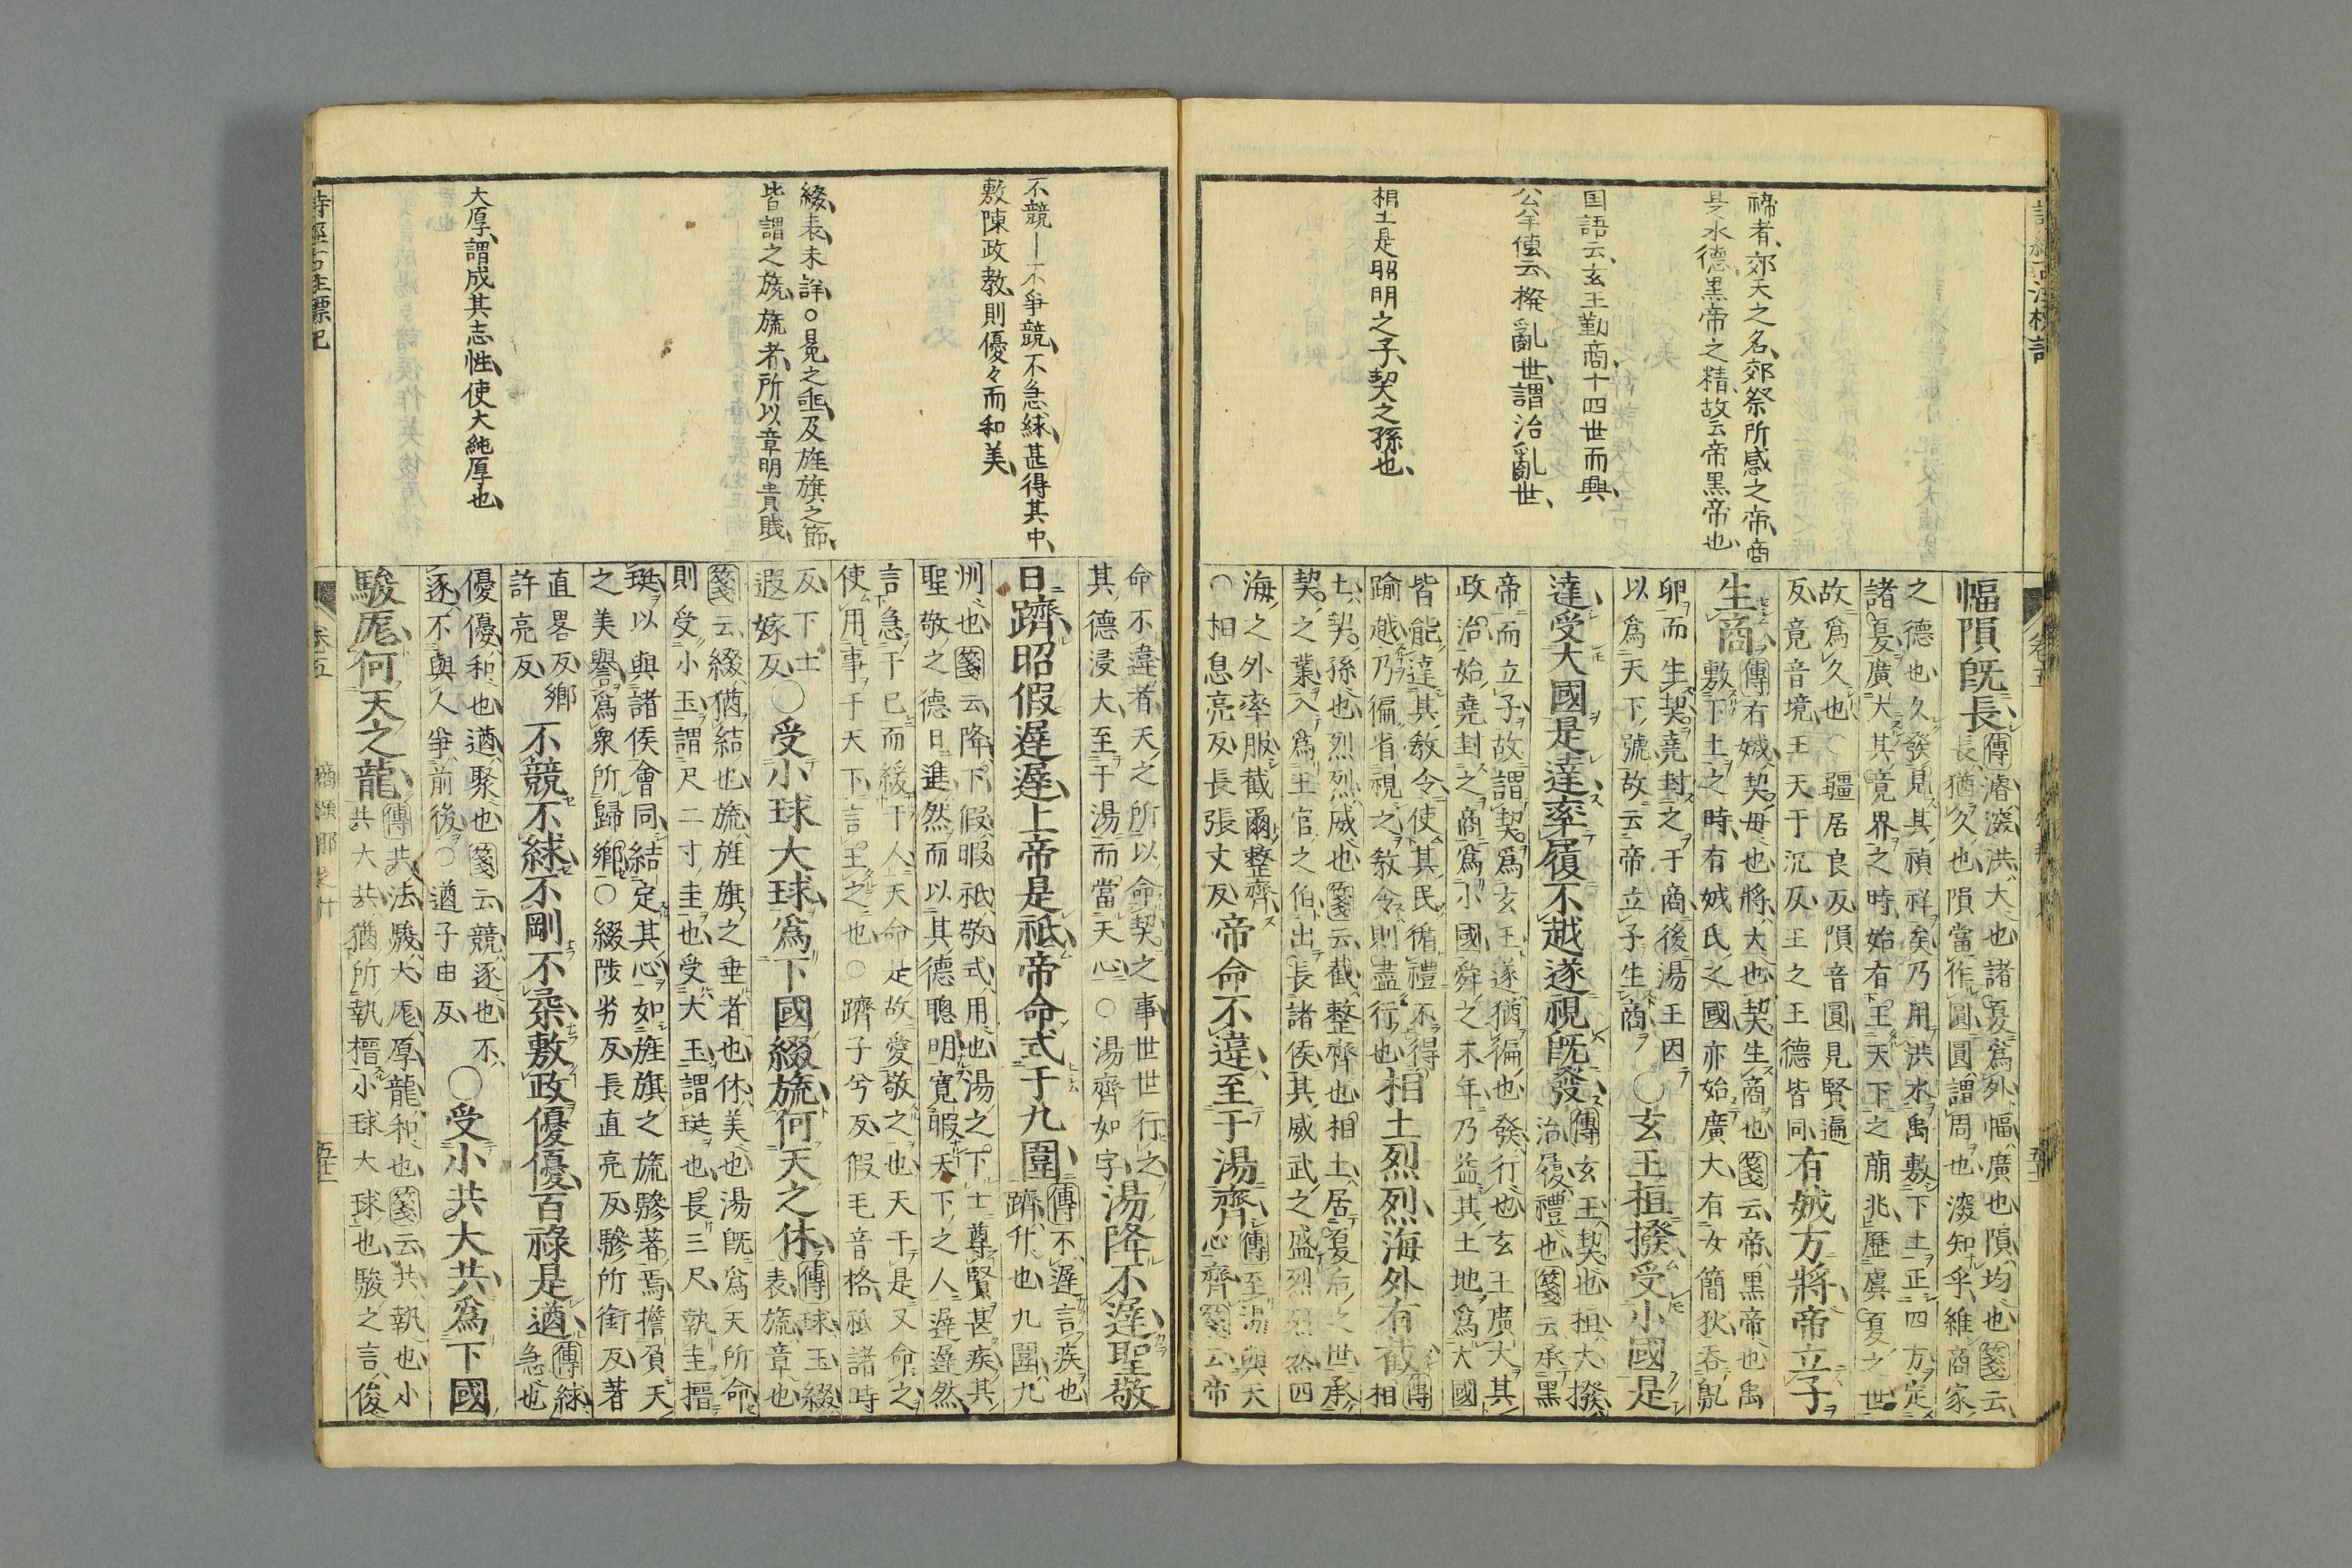 禘者、郊天之名、郊祭所感之帝、商
是水德、黒帝之精、故云帝黒帝也、
国語云、玄王勤商、十四世而興、
公羊傳云、撥亂世、謂治亂世、
相土是昭明之子、契之孫也、
幅隕既長
傳濬深洪大也諸夏爲外幅廣也隕均也箋云
長猶久也隕當作圓圓謂周也深知乎維商家
之德也久發見其禎祥矣乃用洪水禹敷下土正四方定
諸夏廣大其竟界之時始有王天下之萠兆歷虞夏之世
故爲久也○疆居良反隕音圓見賢遍
反竟音境王天于況反王之王德皆同
有娀方將帝立子
生商
傳有娀契母也將大也契生商也箋云帝黒帝也禹
敷下土之時有娀氏之國亦始廣大有女簡狄吞鳦
卵而生契堯封之于商後湯王因
以爲天下號故云帝立子生商
○玄王桓撥受小國是
達受大國是達率履不越遂視既發
傳玄王契也桓大撥
治履禮也箋云承黒
帝而立子故謂契爲玄王遂猶徧也發行也玄王廣大其
政治始堯封之商爲小國舜之末年乃益其土地爲大國
皆能達其敎令使其民循禮不得
踰越乃徧省視之敎令則盡行也
相土烈烈海外有截
傳
相
土契孫也烈烈威也箋云截整齊也相土居夏后之世承
契之業入爲王官之伯出長諸侯其威武之盛烈烈然四
海之外率服截爾整齊
○相息亮反長張丈反
帝命不違至于湯齊
傳至湯與天
心齊箋云帝
不競―不爭競、不急絿、甚得其中、
敷陳政教、則優々而和美、
綴表未詳○晃之垂、及旌旗之節、
皆謂之旒、旒者、所以章明貴賤、
大厚、謂成其志性、使大純厚也、
命不違者天之所以命契之事世世行之
其德浸大至于湯而當天心○湯齊如字
湯降不遲聖敬
日躋昭假遲遲上帝是祗帝命式于九圍
傳不遲言疾也
躋升也九圍九
州也箋云降下假暇祗敬式用也湯之下士尊賢甚疾其
聖敬之德日進然而以其德聰明寛暇天下之人遲遲然
言急于己而緩于人天命是故愛敬之也天于是又命之
使用事于天下言王之也○躋子兮反假毛音格祗諸時
反下士
遐嫁反
○受小球大球爲下國綴旒何天之休
傳球玉綴
表旒章也
箋云綴猶結也旒旌旗之垂者也休美也湯既爲天所命
則受小玉謂尺二寸圭也受大玉謂珽也長三尺執圭搢
珽以與諸侯會同結定其心如旌旗之旒縿著焉擔負天
之美譽爲衆所歸鄉○綴陟劣反長直亮反縿所銜反著
直畧反鄉
許亮反
不競不絿不剛不柔敷政優優百祿是遒
傳絿
急也
優優和也遒聚也箋云競逐也不
逐不與人爭前後○遒子由反
○受小共大共爲下國
駿厖何天之龍
傳共法駿大厖厚龍和也箋云共執也小
共大共猶所執搢小球大球也駿之言俊
卷五